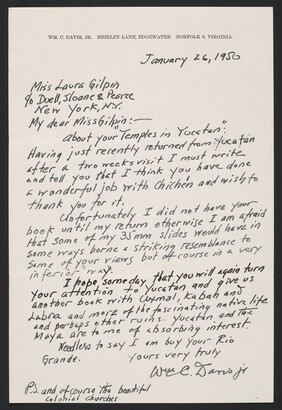 WM. C. DAVIS, JR. SHIRLEY LANE, EDGEWATER NORFOLK 8, VIRGINIA
January 26, 1950
Miss Laura Gilpin
c/o Duell, Sloane & Pearce
New York, N.Y.
My dear Miss Gilpin:—
About your "Temples in Yucatan":
Having just recently returned from Yucatan
after a two weeks visit I must write
and tell you that I think you have done
a wonderful job with Chichen and wish to
thank you for it.
Unfortunately I did not have your
book until my return otherwise I am afraid
that some of my 35mm slides would have in
some ways borne a striking resemblance to
some of your views but of course in a very
inferior way.
I hope someday that you will again turn
your attention to Yucatan and give us
another book with Uxmal, Kabah and
Labna and more of the fascinating native life
and perhaps other ruins. Yucatan and the
Maya are to me of absorbing interest.
Needless to say I am buy your Rio
Grande.
Yours very truly
Wm C. Davis Jr
P.S. and of course the beautiful
colonial churches.